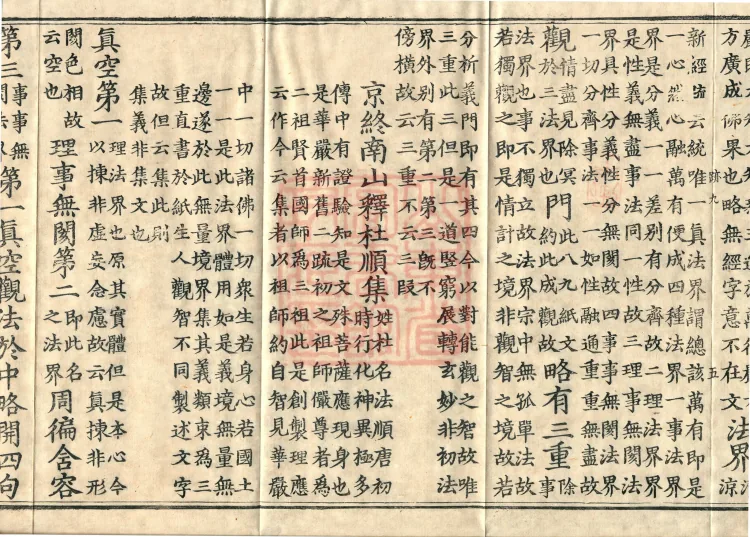 方廣成佛果也略無經字意不在文
法界
涼
新經疏云統唯一真法界謂總該萬有即是
一心然心融萬有便成四種法界一事法界
界是分義一一差別有分齊故二理法界界
是性義無盡事法同一性故三理事無閡法
界具性分義性分無閡故四事事無閡法界
一切分齊事法一一如性融通重重無盡故
觀情盡見除冥於三法界也門此八九紙文約此成觀故略有三重除事
法界也事不獨立故法界宗中無孤單法故
若獨觀之即是情計之境非觀智之境故若
分析義門即有其四今以對能觀之智故唯
三重此三但是一道竪窮展轉玄妙非初法
界外別有第二第三既不
傍橫故云三重不云三段
京終南山釋杜順集姓杜名法順唐初時行化神異極多
傳中有證驗知是文殊菩薩應現身也
是華嚴新舊二疏初之祖師儼尊者為
二祖賢首國師為三祖此是創製理應
云作今云集者以祖師約自智見華嚴
中一切諸佛一切衆生若身心若國土
一一是此法界體用如是義境無量無
邊遂於此無量境界集其義類束為三
重直書於紙生人觀智不同製述文字
故但云集此則
集義非集文也
真空第一理法界也原其實體但是本心今以揀非虛妄念慮故云真揀非形
閡色相故云空也理事無閡第二即此名之法界周徧含容
第三事事無閡法界第一真空觀法於中略開四句
跡九
五